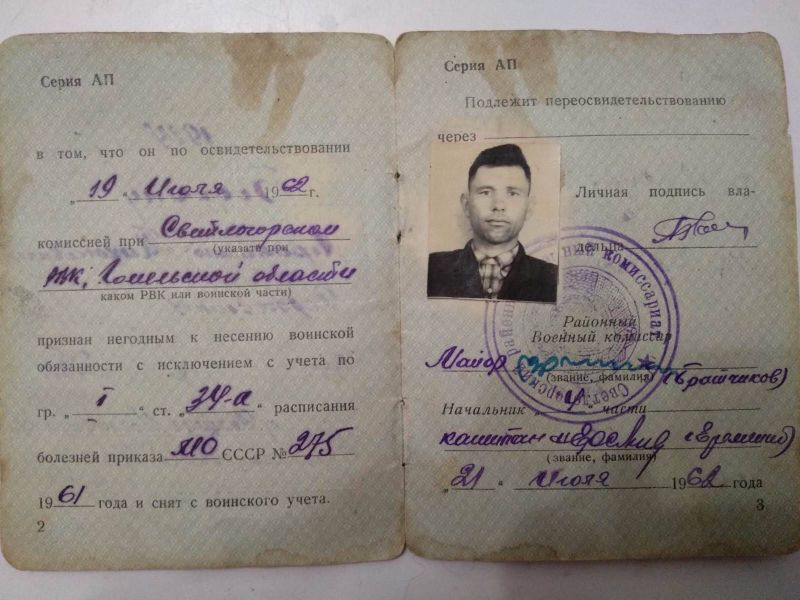 Серия АП
в том, что он по освидетельствовании
„19“ Июля 1962 г.
комиссией при Светлогорском
(указати при
РВК, Гомельской области
каком РВК или воинской части)
признан негодным к несению воинской
обязанности с исключением с учета по
гр. „I“ ст. „34-а“ расписания
болезней приказа МО СССР № 275
1961 года и снят с воинского учета.
2
Серия АП
Подлежит переосвидетельствованию
через
Личная подпись вла-
дельца
Районный
Военный комиссар
Майор (Братчиков)
(звание, фамилия)
Начальник части
капитан (Еремин)
(звание, фамилия)
„21“ Июля 1962 года
3